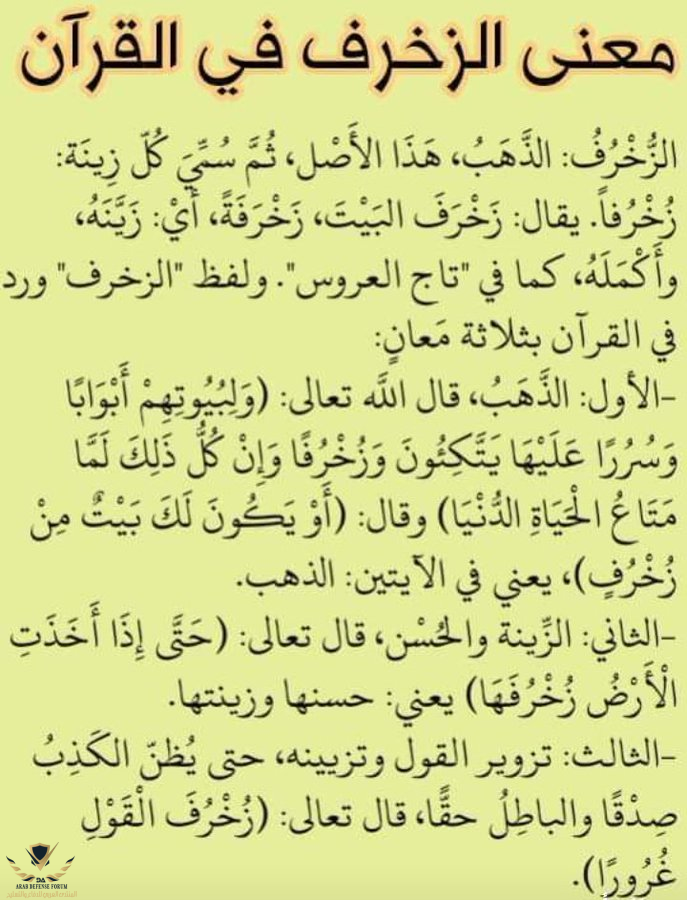 معنى الزخرف في القرآن
الزُّخْرُفُ: الذَّهَبُ، هَذَا الأَصْل، ثُمَّ سُمِّيَ كُلّ زِينَة:
زُخْرُفاً. يقال: زَخْرَفَ البَيْتَ، زَخْرَفَةً، أَيْ: زَيَّنَهُ،
وأَكْمَلَهُ، كما في "تاج العروس". ولفظ "الزخرف" ورد
في القرآن بثلاثة مَعانٍ:
-الأول: الذَّهَبُ، قال الله تعالى: (وَلِبُيُوتِهِمْ أَبْوَابًا
وَسُرُرًا عَلَيْهَا يَتَّكِئُونَ وَزُخْرُفًا وَإِنْ كُلُّ ذَلِكَ لَمَّا
مَتَاعُ الْحَيَاةِ الدُّنْيَا) وقال: (أَوْ يَكُونَ لَكَ بَيْتٌ مِنْ
زُخْرُفٍ)، يعني في الآيتين: الذهب.
-الثاني: الزِّينة والحُسْن، قال تعالى: (حَتَّى إِذَا أَخَذَتِ
الْأَرْضُ زُخْرُفَهَا) يعني: حسنها وزينتها.
-الثالث: تزوير القول وتزيينه، حتى يُظنّ الكَذِبُ
صِدْقًا والباطِلُ حقًّا، قال تعالى: (زُخْرُفَ الْقَوْلِ
غُرُورًا).
DA
ARAB DEFENSE FORUM